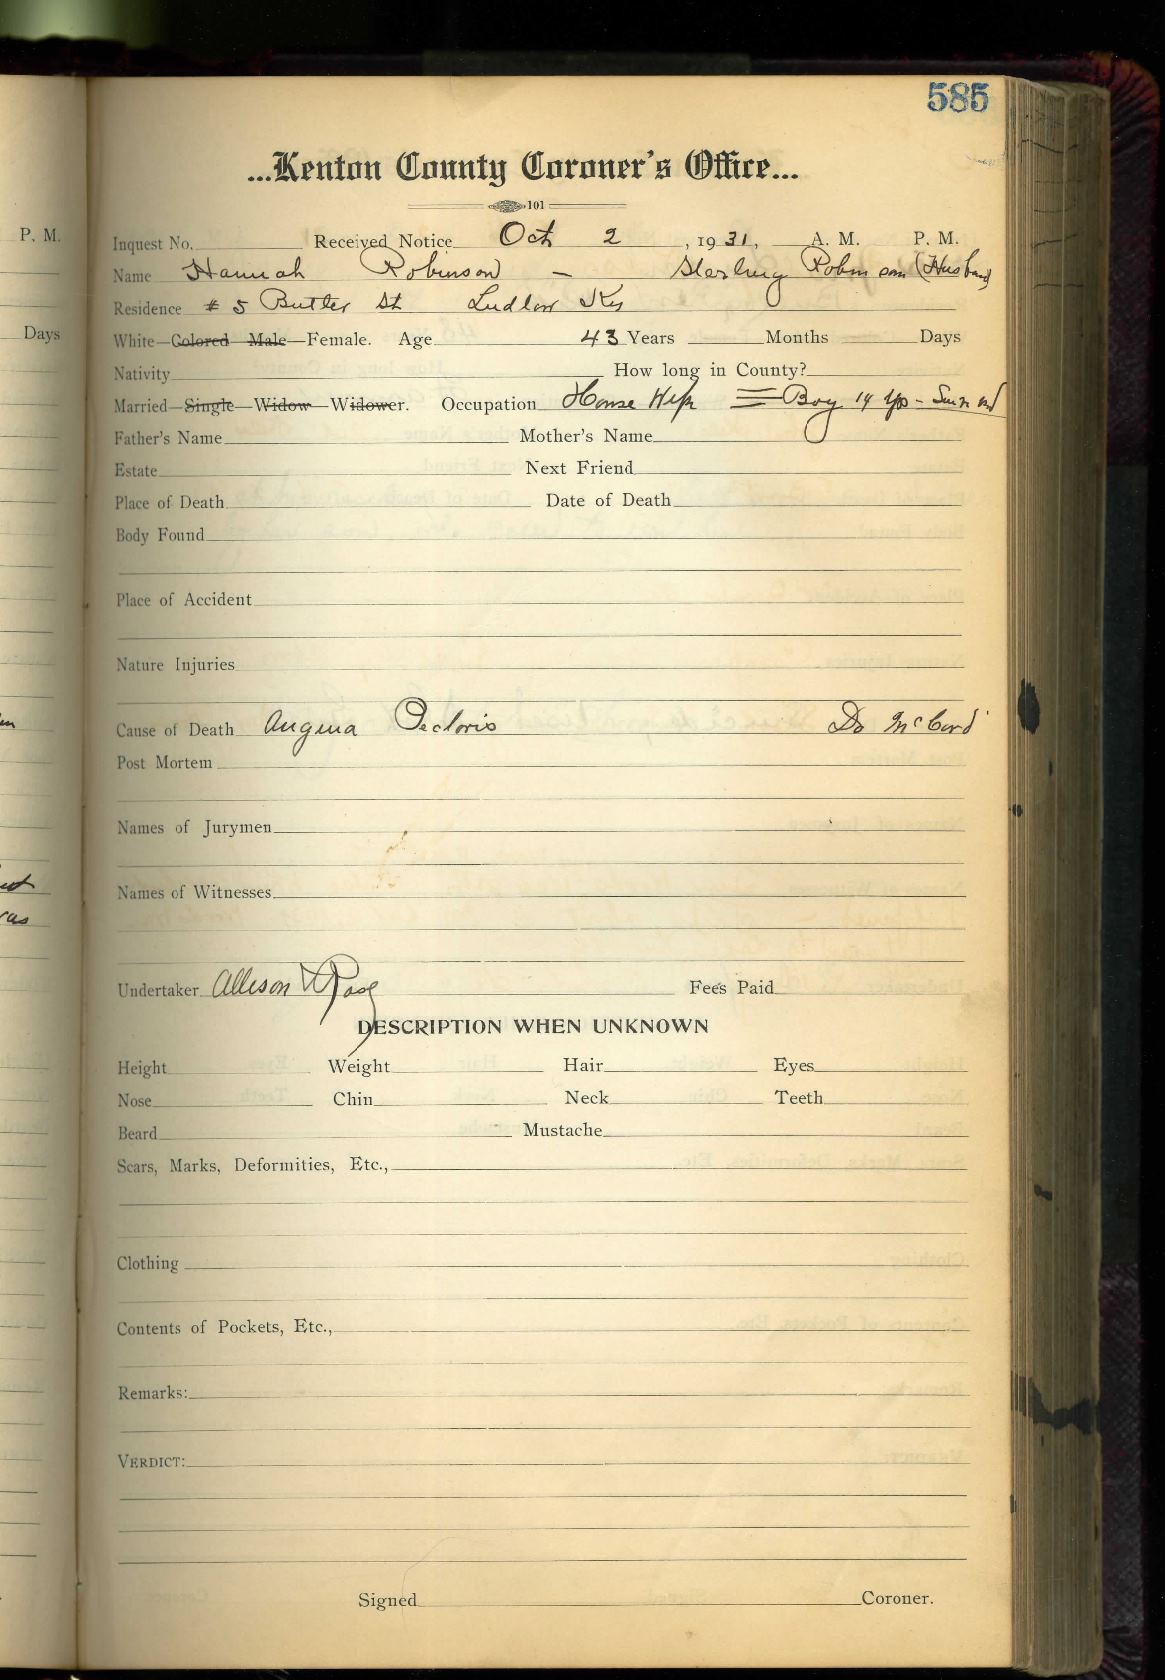 585
...Kenton County Coroner's Office...
101
Inquest No. Received Notice Oct 2, 1931, A. M. P. M.
Name Hannah Robinson – Sterling Robinson (Husband
Residence # 5 Butler St Ludlow Ky
White—Colored—Male—Female. Age 43 Years Months Days
Nativity How long in County?
Married—Single—Widow—Widower. Occupation House Wife = Boy 14 yrs -
Father's Name Mother's Name
Estate Next Friend
Place of Death Date of Death
Body Found
Place of Accident
Nature Injuries
Cause of Death Angina Pectoris Dr McCord
Post Mortem
Names of Jurymen
Names of Witnesses
Undertaker Allison & Rose Fees Paid
DESCRIPTION WHEN UNKNOWN
Height Weight Hair Eyes
Nose Chin Neck Teeth
Beard Mustache
Scars, Marks, Deformities, Etc.,
Clothing
Contents of Pockets, Etc.,
Remarks:
VERDICT:
Signed Coroner.
P. M.
Days